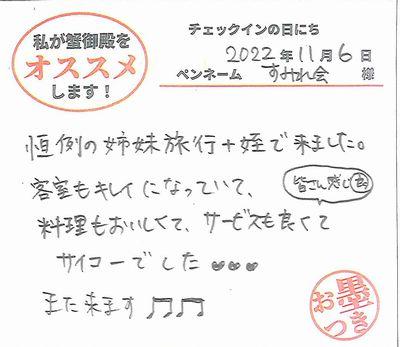 私が蟹御殿を
オススメ
します!
チェックインの日にち
2022年11月6日
ペンネーム すみれ会 様
恒例の姉妹旅行+姪で来ました。
客室もキレイになっていて、
皆さん感じ良
料理もおいしくて、サービスも良くて
サイコーでした♥♥♥
また来ます♫♫
お墨つき